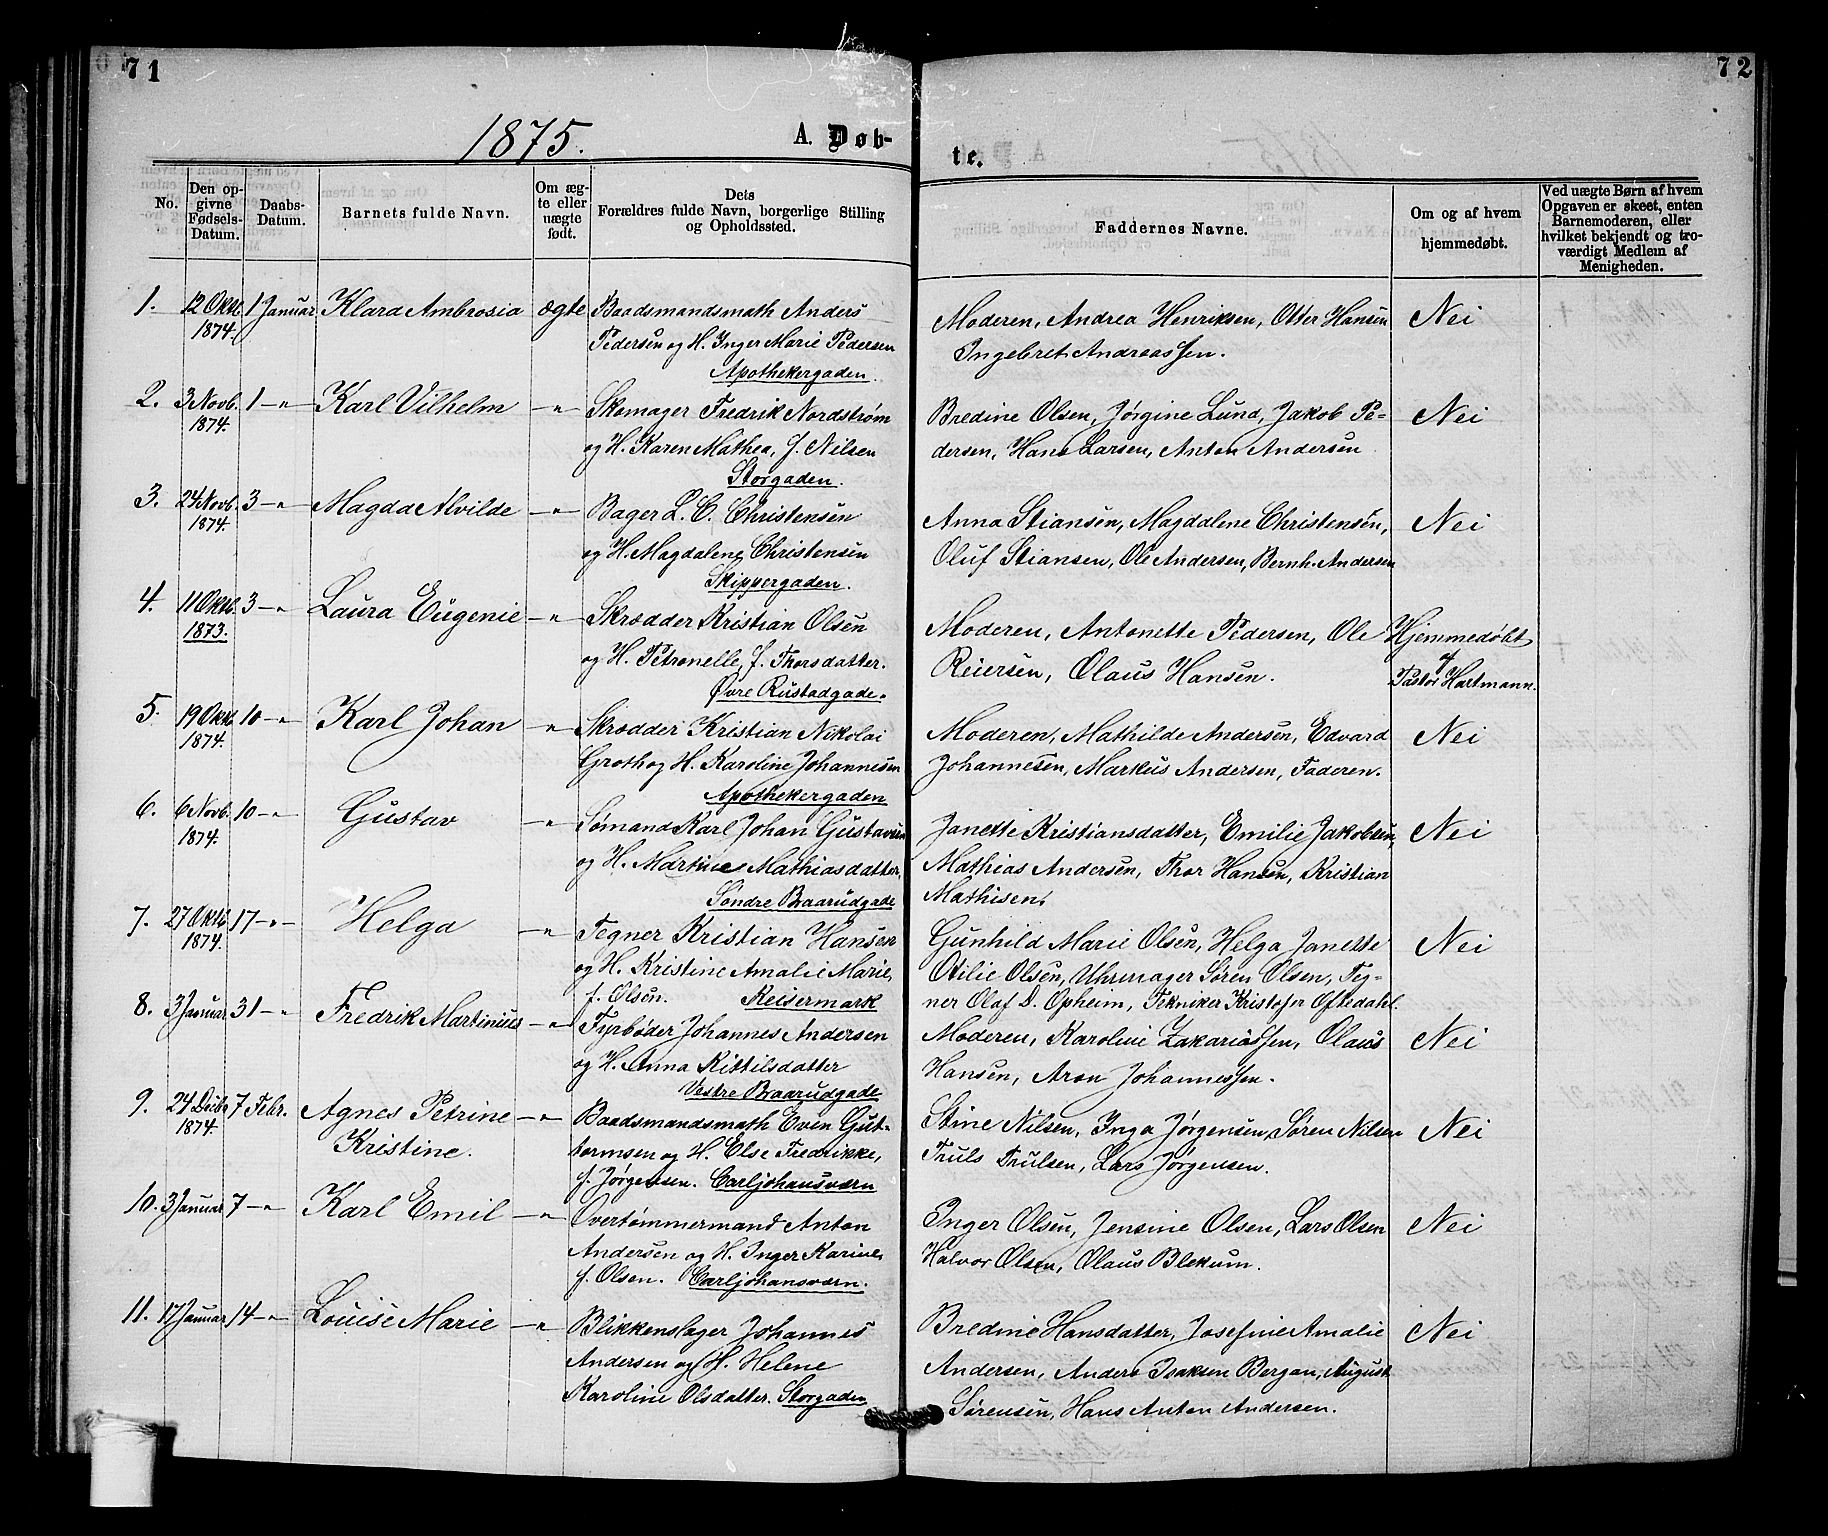 71
72
1875.
A. Døb-
te.
No.
Den op-
givne
Fødsels-
Datum.
Daabs-
Datum.
Barnets fulde Navn.
Om æg-
te eller
uægte
født.
Dets
Forældres fulde Navn, borgerlige Stilling
og Opholdssted.
Faddernes Navne.
Om og af hvem
hjemmedøbt.
Ved uægte Børn af hvem
Opgaven er skeet, enten
Barnemoderen, eller
hvilket bekjendt og tro-
værdigt Medlem af
Menigheden.
1. 12 Oktb. 1 Januar Klara Ambrosia ægte Baadsmandsmath Anders
1874.
Pedersen og H. Inger Marie Pedersen
Apothekergaden.
Moderen, Andrea Henriksen, Otter Hansen Nei
Ingebret Andreassen.
2. 3 Novb. 1 -"- Karl Vilhelm -"- Skomager Fredrik Nordstrøm
1874.
og H. Karen Mathea, f. Nilsen
Storgaden.
Bredine Olsen, Jørgine Lund, Jakob Pe- Nei
dersen, Hans Larsen, Anton Andersen
3. 24 Novb. 3 -"- Magda Alvilde -"- Bager L. C. Christensen
1874.
og H. Magdalene Christensen
Skippergaden.
Anna Stiansen, Magdalene Christensen, Nei
Oluf Stiansen, Ole Andersen, Bernh. Andersen
4. 11 Oktb. 3 -"- Laura Eugenie -"- Skrædder Kristian Olsen
1873.
og H. Petronelle, f. Thorsdatter.
Øvre Rustadgade.
Moderen, Antonette Pedersen, Ole Hjemmedøbt
Reiersen, Olaus Hansen. af
Pastor Hartmann.
5. 19 Oktb. 10 -"- Karl Johan -"- Skrædder Kristian Nikolai
1874.
Groth og H. Karoline Johannesen
Apothekergaden
Moderen, Mathilde Andersen, Edvard Nei
Johannesen, Markus Andersen, Faderen.
6. 6 Novb. 10 -"- Gustav -"- Sømand Karl Johan Gustavsen
1874.
og H. Martine Mathiasdatter,
Søndre Braarudgade
Janette Kristiansdatter, Emilie Jakobsen, Nei
Mathias Andersen, Thor Hansen, Kristian
Mathisen.
7. 27 Oktb. 17 -"- Helga -"- Tegner Kristian Hansen
1874.
og H. Kristine Amalie Marie,
f. Olsen. Keisermark
Gunhild Marie Olsen, Helga Janette Nei
Otilie Olsen, Uhrmager Søren Olsen, Teg-
ner Olaf D. Opheim, Tekniker Kristofer Oftedahl.
8. 3 Januar 31 -"- Fredrik Martinius -"- Fyrbøder Johannes Andersen
og H. Anna Kittilsdatter
Vestre Braarudgade
Moderen, Karoline Zakariassen, Olaus Nei
Hansen, Aron Johannessen.
9. 24 Decbr 7 Febr. Agnes Petrine -"- Baadsmandsmath Even Gut-
1874.
Kristine. tormsen og H. Else Fredrikke,
f. Jørgensen. Carljohansværn
Stine Nilsen, Inga Jørgensen, Søren Nilsen Nei
Truls Trulsen, Lars Jørgensen.
10. 3 Januar 7 -"- Karl Emil -"- Overtømmermand Anton
Andersen og H. Inger Karine,
f. Olsen. Carljohansværn.
Inger Olsen, Jensine Olsen, Lars Olsen Nei
Halvor Olsen, Olaus Blekum.
11. 17 Januar 14 -"- Louise Marie -"- Blikkenslager Johannes
Andersen og H. Helene
Karoline Olsdatter. Storgaden
Bredine Hansdatter, Josefine Amalie Nei
Andersen, Anders Isaksen Bergan, August
Sørensen, Hans Anton Andersen.